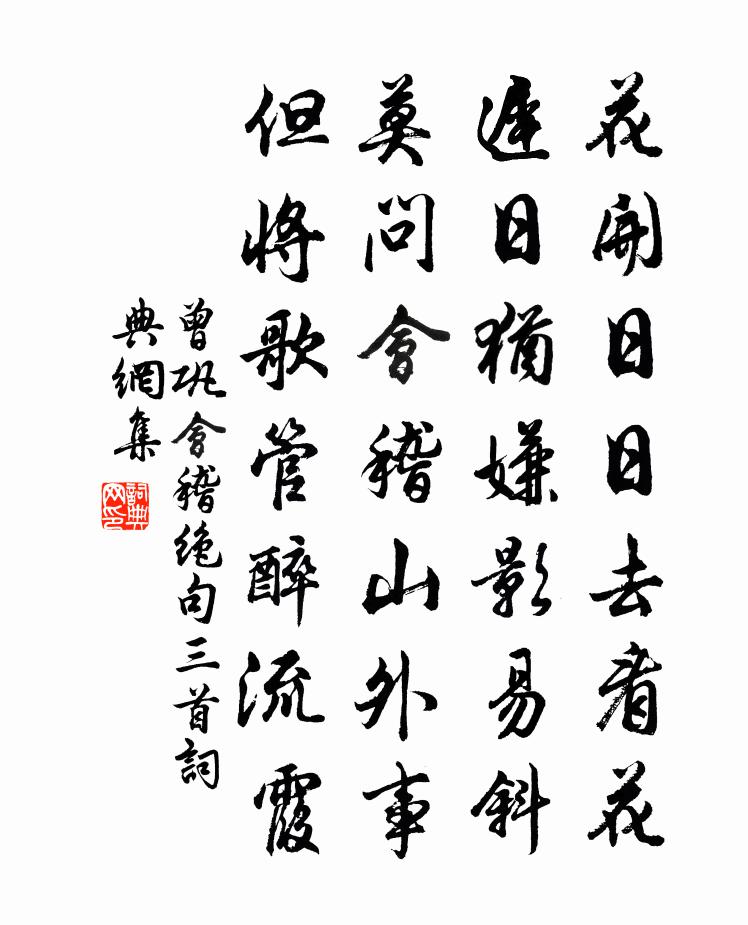 花開日日去看花
遲日猶嫌影易斜
莫問會稽山外事
但將歌管醉流霞
曾巩會稽绝句三首詞
典網集
詞典
网印